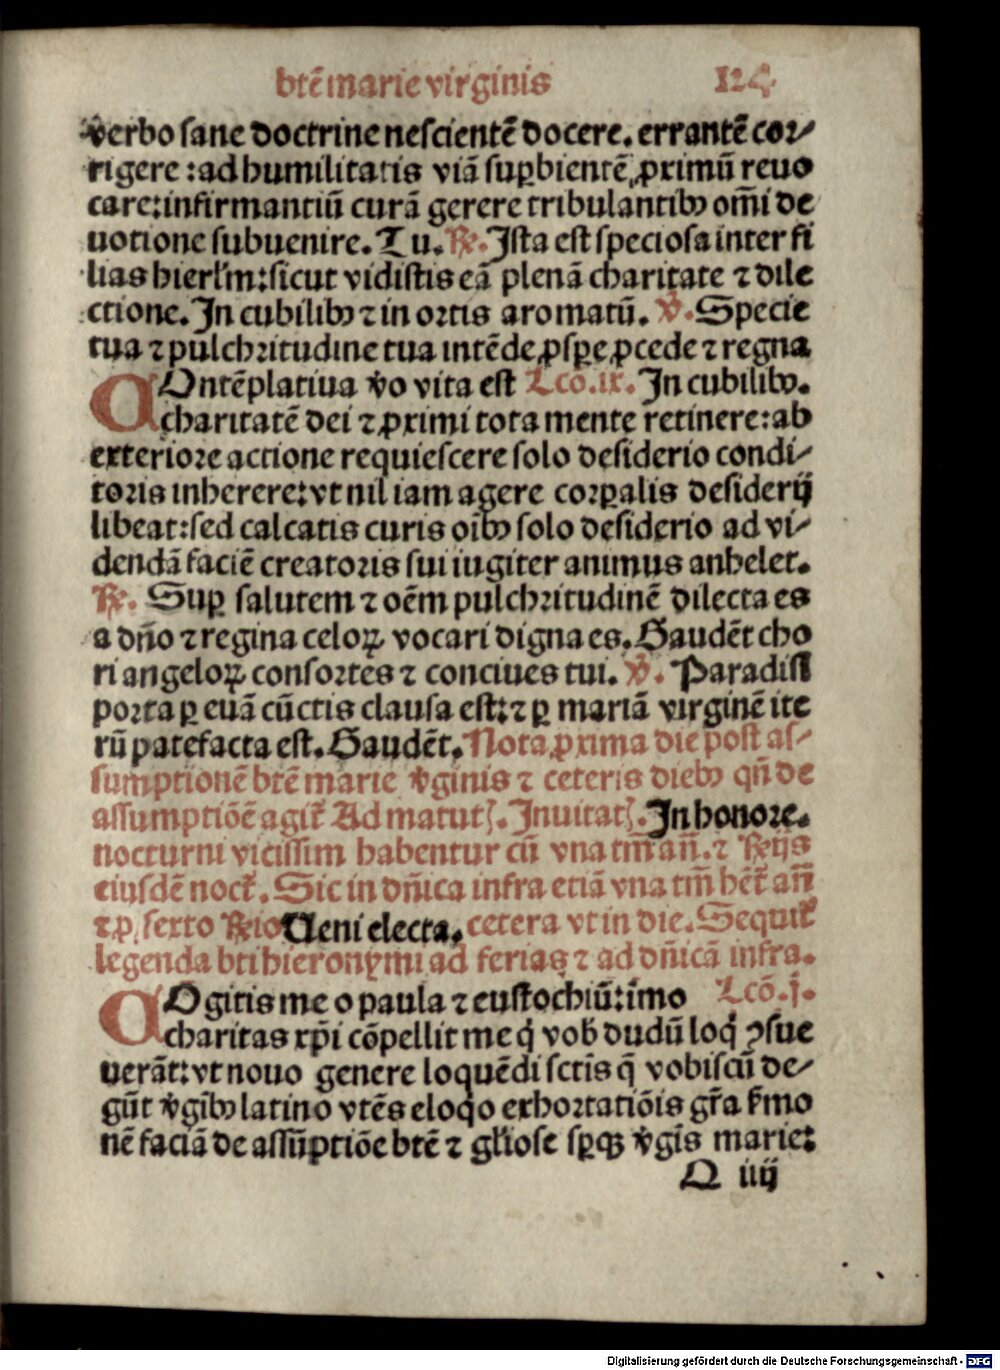 btē marie virginis 124
verbo sane doctrine nescientē docere. errantē cor⸗
rigere : ad humilitatis viā suꝑbientē ꝓximū reuo
care: infirmantiū curā gerere tribulantibꝰ om̄i de
uotione subuenire. Tu. ℟. Ista est speciosa inter fi
lias hierl'm: sicut vidistis eā plenā charitate ⁊ dile
ctione. In cubilibꝰ ⁊ in ortis aromatū. ℣. Specie
tua ⁊ pulchritudine tua intēde ꝓsꝑe ꝓcede ⁊ regna
COntēplatiua v̓o vita est Lcō. ix. In cubilibꝰ.
charitatē dei ⁊ ꝓximi tota mente retinere: ab
exteriore actione requiescere solo desiderio condi⸗
toris inherere: vt nil iam agere corꝑalis desiderij
libeat: sed calcatis curis oībꝰ solo desiderio ad vi⸗
dendā faciē creatoris sui iugiter animus anhelet.
℟. Suꝑ salutem ⁊ oēm pulchritudinē dilecta es
a dn̄o ⁊ regina celoꝝ vocari digna es. Gaudēt cho
ri angeloꝝ consortes ⁊ conciues tui. ℣. Paradisi
porta ꝑ euā cūctis clausa est: ⁊ ꝑ mariā virginē ite
rū patefacta est. Gaudēt. Nota ꝓxima die post as⸗
sumptionē btē marie v̓ginis ⁊ ceteris diebꝰ qn̄ de
assumptiōe agit̄ Ad matutꝭ. Inuitatꝭ. In honore.
nocturni vicissim habentur cū vna tm̄ an̄. ⁊ ℟ijs
eiusdē noct̄. Sic in dn̄ica infra etiā vna tm̄ hēt̄ an̄
⁊ ꝓ sexto ℟io Ueni electa. cetera vt in die. Sequit̄
legenda bti hieronymi ad ferias ⁊ ad dn̄icā infra.
COgitis me o paula ⁊ eustochiū: īmo Lcō. j.
charitas xp̄i cōpellit me q̇ vob̓ dudū loq̇ ꝯsue
uerāt: vt nouo genere loquēdi sctīs q̄ vobiscū de⸗
gūt v̓gībꝰ latino vtēs eloqo exhortatiōis gr̄a s̓mo
nē faciā de assūptiōe btē ⁊ gl'iose sꝑqꝫ v̓gīs marie:
Q iiij
Digitalisierung gefördert durch die Deutsche Forschungsgemeinschaft - DFG